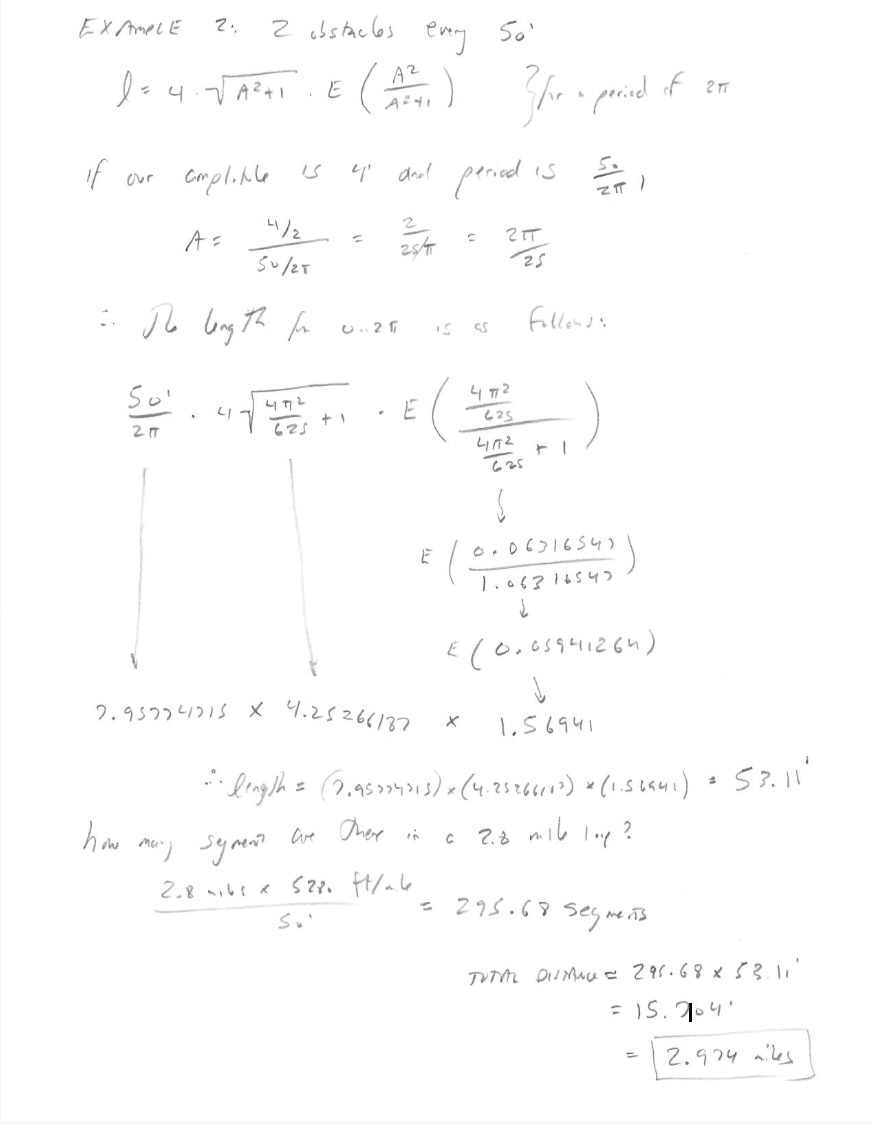 EXAMPLE 2: 2 obstacles every 50'
l = 4 · √(A²+1) · E (A²/(A²+1)) } for a period of 2π
if our amplitude is 4' and period is 50/2π,
A = (4/2)/(50/2π) = 2/(25/π) = 2π/25
∴ The length for 0..2π is as follows:
50'/2π · 4√(4π²/625 + 1) · E ((4π²/625)/(4π²/625 + 1))
E (0.06316547/1.06316547)
E (0.05941264)
7.95774715 x 4.25266187 x 1.56941
∴ length = (7.95774715) x (4.25266187) x (1.56941) = 53.11'
how many segment are there in a 2.8 mile loop?
(2.8 miles x 5280 ft/mile)/50' = 295.68 segments
TOTAL DISTANCE = 295.68 x 53.11'
= 15.704'
= 2.974 miles